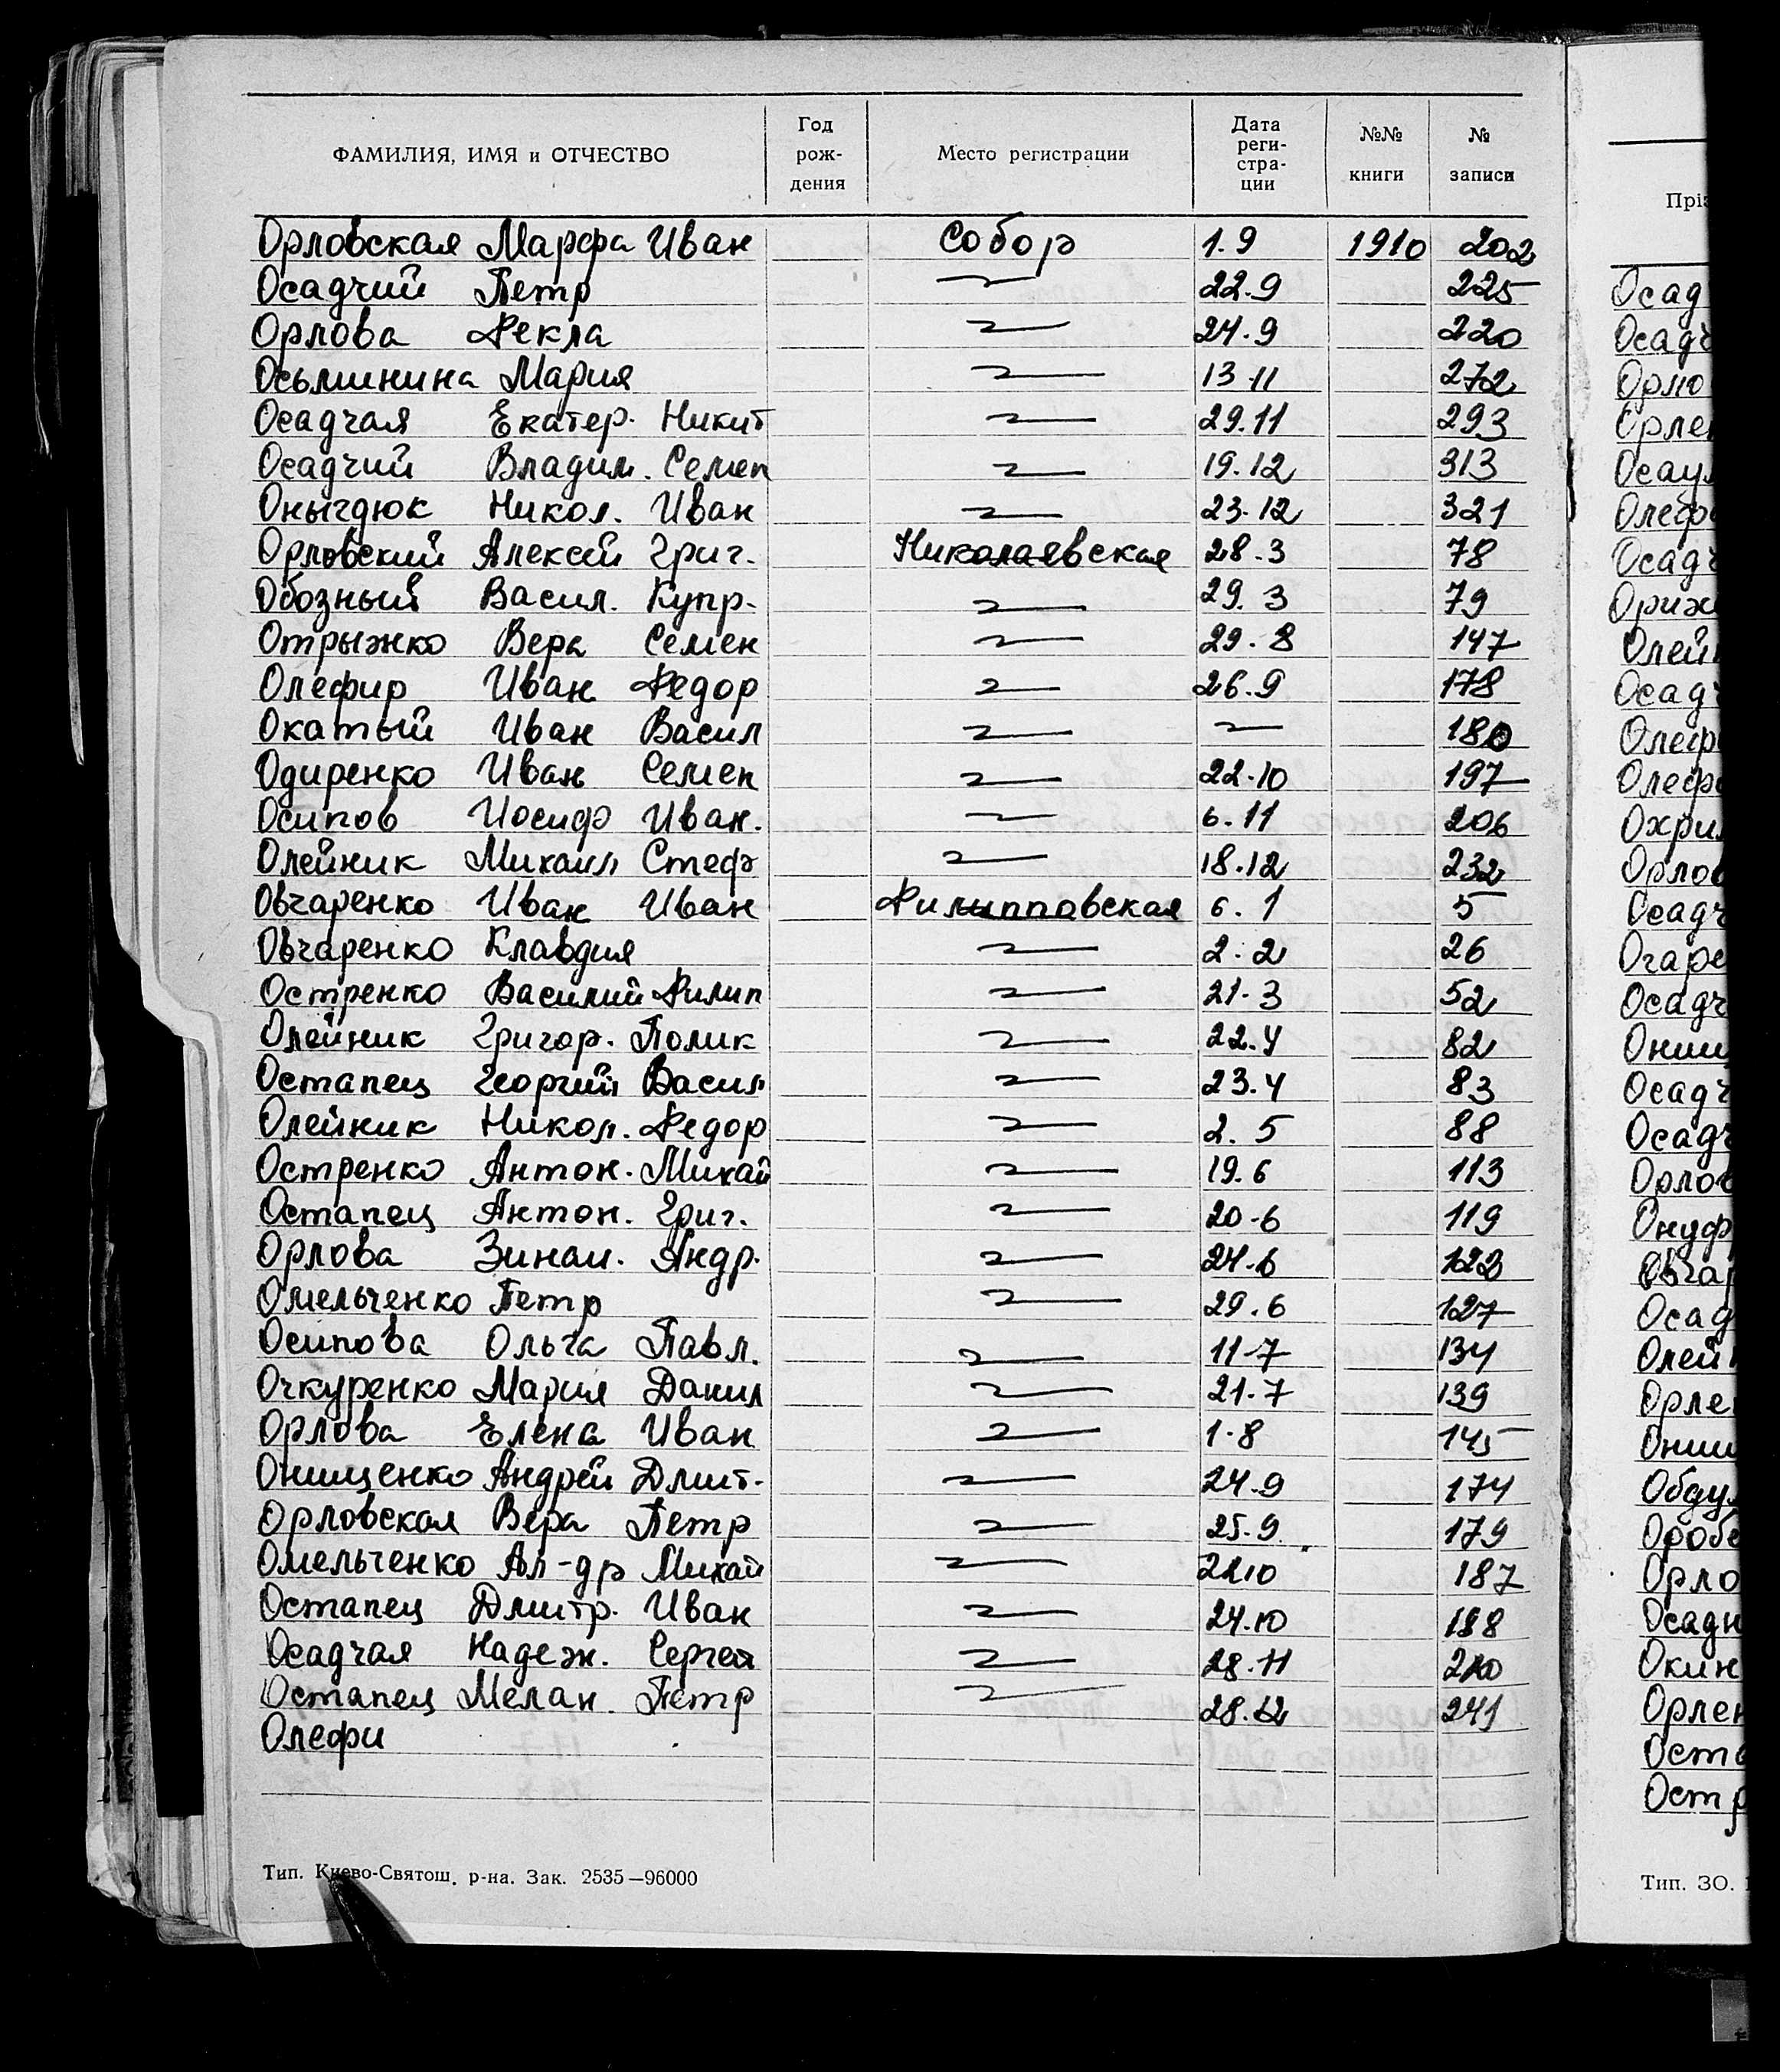 ФАМИЛИЯ, ИМЯ и ОТЧЕСТВО Год рож-дения Место регистрации Дата реги-стра-ции №№ книги № записи
Орловская Марфа Иван Собор 1.9 1910 202
Осадчий Петр 22.9 225
Орлова Фекла 24.9 220
Осьминина Мария 13 11 272
Осадчая Екатер. Никит 29.11 293
Осадчий Владим. Семен 19.12 313
Оныгдюк Никол. Иван 23.12 321
Орловский Алексей Григ. Николаевская 28.3 78
Обозный Васил. Купр. 29.3 79
Отрыжко Вера Семен 29.8 147
Олефир Иван Федор 26.9 178
Окатый Иван Васил 180
Одиренко Иван Семен 22.10 197
Осипов Иосиф Иван. 6.11 206
Олейник Михаил Стеф 18.12 232
Овчаренко Иван Иван Филипповская 6.1 5
Овчаренко Клавдия 2.2 26
Остренко Василий Филип 21.3 52
Олейник Григор. Полик 22.4 82
Остапец Георгий Васил 23.4 83
Олейник Никол. Федор 2.5 88
Остренко Антон. Михай 19.6 113
Остапец Антон. Григ. 20-6 119
Орлова Зинаи. Андр. 24.6 123
Омельченко Петр 29.6 127
Осипова Ольга Павл. 11-7 134
Очкуренко Мария Данил 21.7 139
Орлова Елена Иван 1.8 145
Онищенко Андрей Дмит. 24.9 174
Орловская Вера Петр 25.9 179
Омельченко Ал-др Михай 187
Остапец Дмитр. Иван 24.10 188
Осадчая Надеж. Сергей 28.11 210
Остапец Мелан. Петр 28.12 241
Олефи
Тип. Киево-Святош. р-на. Зак. 2535—96000
Прі
Осад
Осадч
Орло
Орле
Осаул
Олефи
Осадч
Ориж
Олей
Осадч
Олеф
Олеф
Охри
Орлов
Осадч
Огаре
Осадч
Онищ
Осадч
Осадч
Орлов
Онуф
Овчар
Осад
Олей
Орле
Ониш
Обду
Оробе
Орло
Осадч
Окин
Орлен
Оста
Остр
Тип. ЗО.